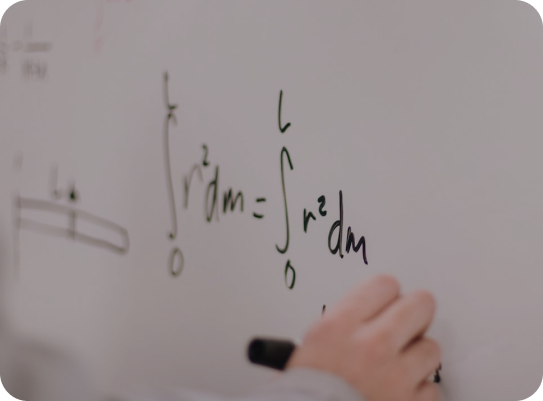 ∫₀ᴸ r²dm = ∫₀ᴸ r²dm
L